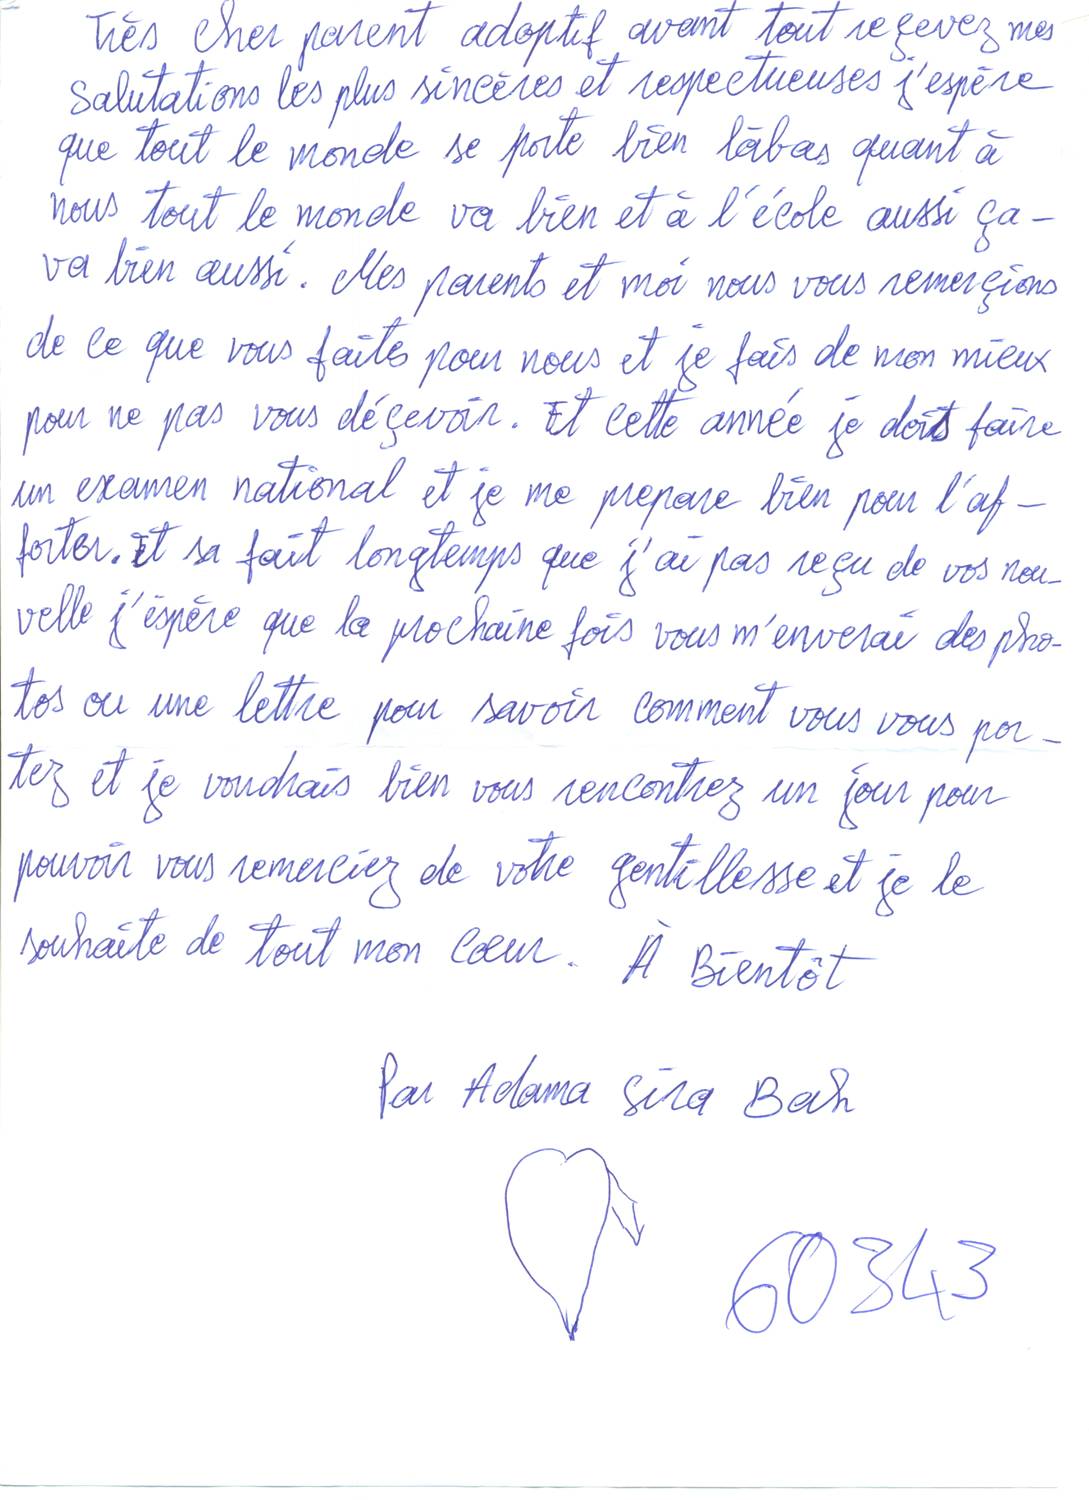 Très cher parent adoptif avant tout reçevez mes
salutations les plus sincères et respectueuses j'espère
que tout le monde se porte bien làbas quant à
nous tout le monde va bien et à l'école aussi ça-
va bien aussi. Mes parents et moi nous vous remerçions
de ce que vous faites pour nous et je fais de mon mieux
pour ne pas vous déçevoir. Et cette année je dois faire
un examen national et je me prepare bien pour l'af-
forter. Et sa fait longtemps que j'ai pas reçu de vos nou-
velle j'éspère que la prochaine fois vous m'enverai des pho-
tos ou une lettre pour savoir comment vous vous por-
tez et je voudrais bien vous rencontrez un jour pour
pouvoir vous remerciez de votre gentillesse et je le
souhaite de tout mon cœur. À Bientôt
Par Adama Sira Bah
60343